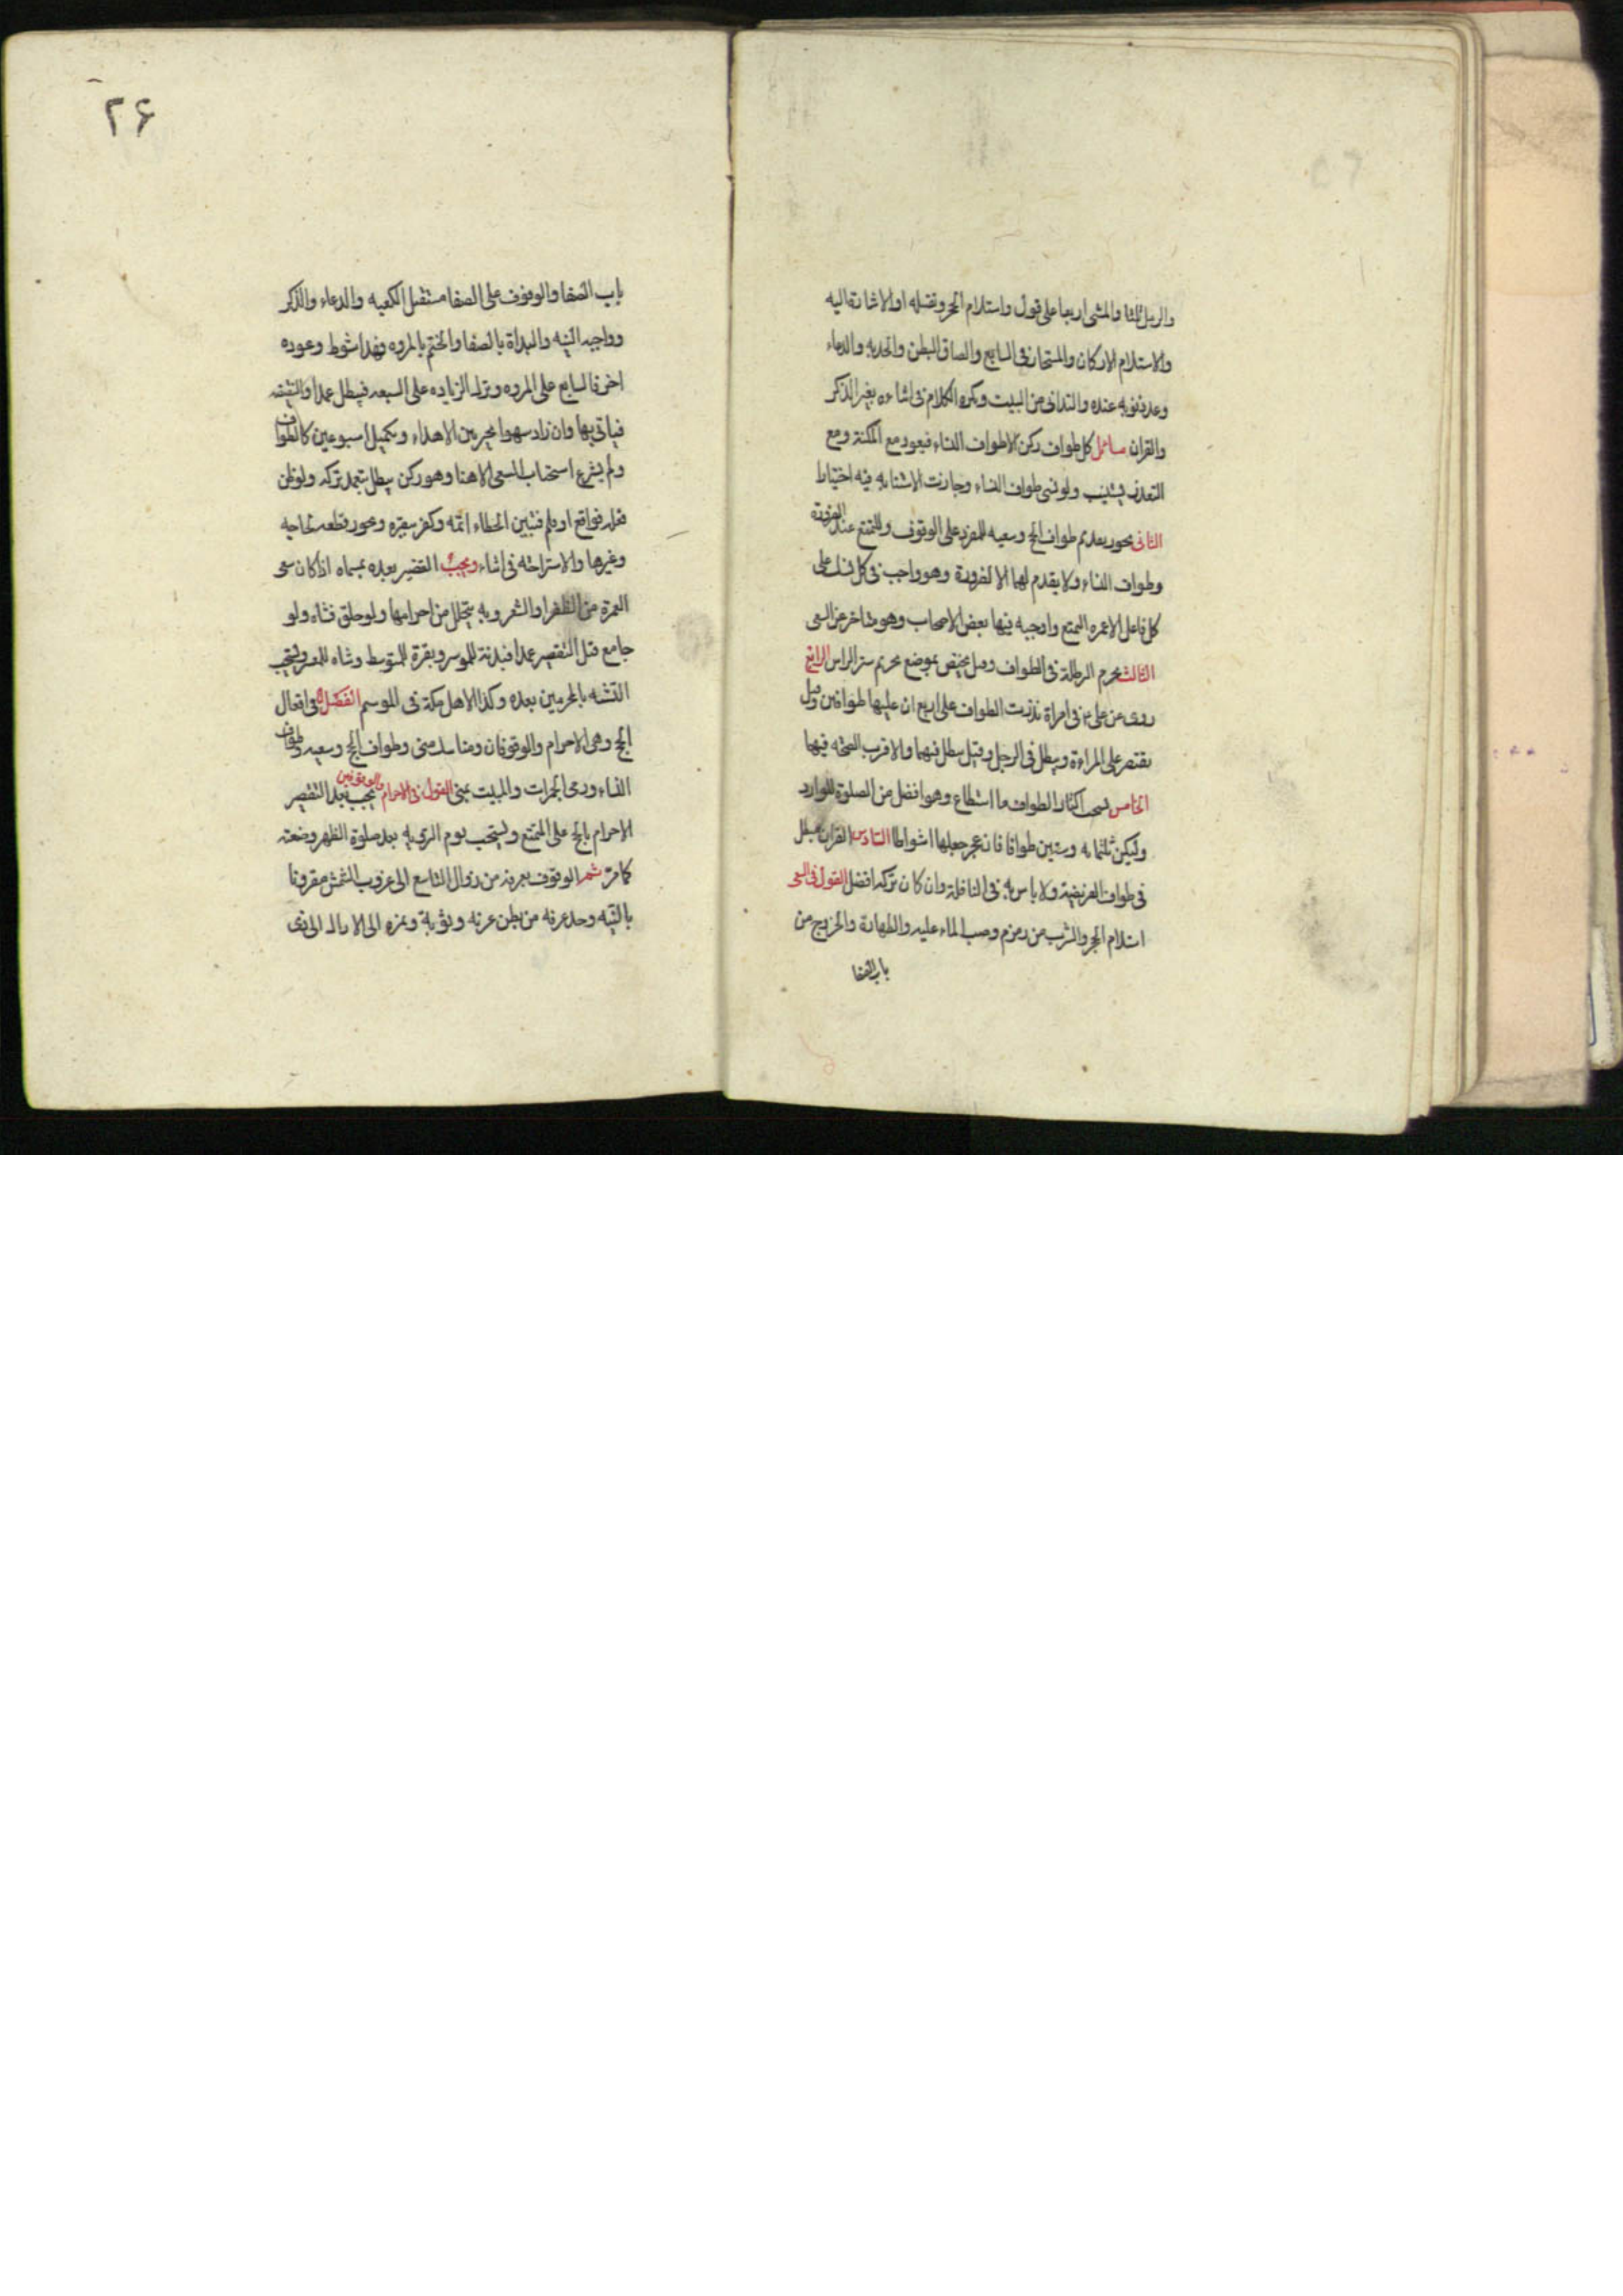 والرمل ثلثا والمشى اربعا على قول واستلام الحجر وتقبيله او الاشارة اليه
والاستلام الاركان والمستجار فى السابع والصاق البطن والخد به والدعاء
وعد ذنوبه عنده والتدانى من البيت ويكره الكلام فى اثناءه بغير الذكر
والقران مسائل كل طواف ركن الا طواف النساء فيعود مع المكنة ومع
التعذر يستنيب ولو نسى طواف النساء وجازت الاستنابه فيه اختيارا
الثانى يجوز تقديم طواف الحج وسعيه للمفرد على الوقوف وللمتمتع عند الضرورة
وطواف النساء ولا يقدم لهما الا لضرورة وهو واجب فى كل نسك على
كل فاعل الا عمره التمتع واوجبه فيها بعض الاصحاب وهو متاخر عن السعى
الثالث يحرم البرطلة فى الطواف وقيل يختص بموضع تحريم ستر الراس الرابع
روى عن على ع فى امراة نذرت الطواف على اربع ان عليها طوافين وقيل
يقتصر على المراءة ويبطل فى الرجل وقيل يبطل فيهما والاقرب الصحة فيهما
الخامس يستحب اكثار الطواف ما استطاع وهو افضل من الصلوة للوارد
وليكن ثلثمائه وستين طوافا فان عجز جعلها اشواطا السادس القران مبطل
فى طواف الفريضة ولا باس به فى النافلة وان كان تركه افضل القول فى السعى
استلام الحجر والشرب من زمزم وصب الماء عليه والطهارة والخروج من
باب الصفا
۲۶
باب الصفا والوقوف على الصفا مستقبل الكعبه والدعاء والذكر
وواجبه النيه والبداة بالصفا والختم بالمروه فهذا شوط وعوده
اخر فالسابع على المروه وترك الزياده على السبعه فيبطل عمدا والنقيصه
فياتى بها وان زاد سهوا تخير بين الاهداء وتكميل اسبوعين كالطواف
ولم يشرع استحباب السعى الا هنا وهو ركن يبطل بتعمد تركه ولو ظن
فعله فواقع او قلم فتبين الخطاء اتمه وكفر ببقره ويجوز قطعه لحاجه
وغيرها والاستراحته فى اثناء ويجب التقصير بعده بمسماه اذا كان سعى
العمرة من الظفر او الشعر وبه يتحلل من احرامها ولو حلق فشاه ولو
جامع قبل التقصير عمدا فبدنة للموسر وبقرة للمتوسط وشاه للمعسر ويستحب
التشبه بالمحرمين بعده وكذا لاهل مكة فى الموسم الفصل فى افعال
الحج وهى الاحرام والوقوفان ومناسك منى وطواف الحج وسعيه وطواف
النساء ورمى الجمرات والمبيت بمنى القول فى الاحرام والوقوفين يجب بعد التقصير
الاحرام بالحج على المتمتع ويستحب يوم الترويه بعد صلوة الظهر وصفته
كما مر ثم الوقوف بعرفه من زوال التاسع الى غروب الشمس مقرونا
بالنيه وحد عرفه من بطن عرنه وثويه ونمره الى الاراك الى ذى